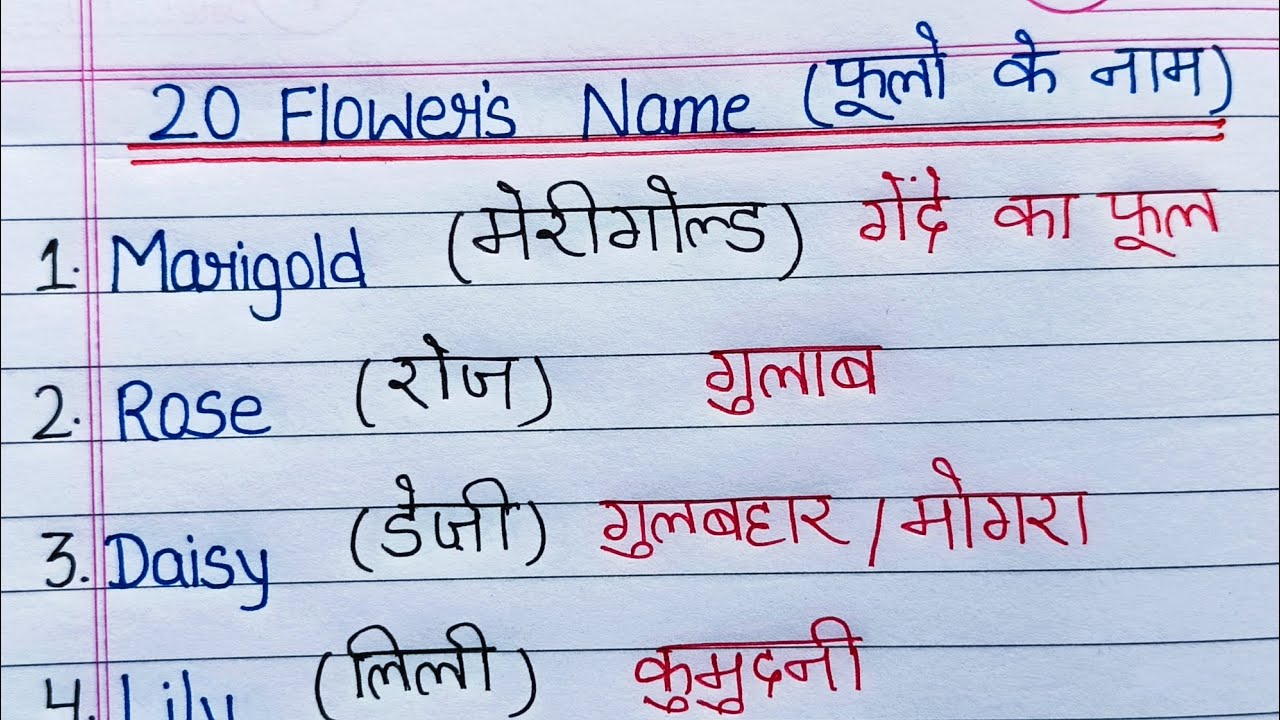 20 Flower's Name (फूलो के नाम)
1. Marigold (मेरीगोल्ड) गेंदे का फूल
2. Rose (रोज) गुलाब
3. Daisy (डेज़ी) गुलबहार / मोगरा
4. Lily (लिली) कुमुदनी